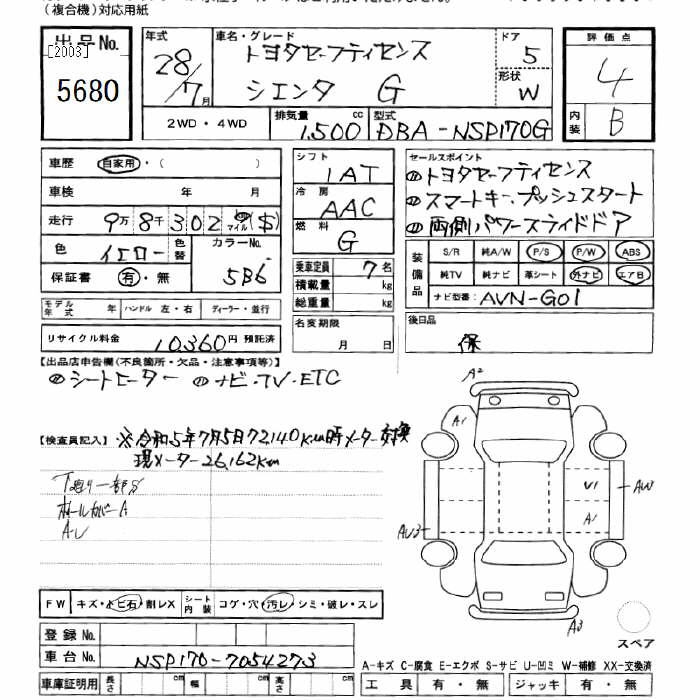 (複合機)対応用紙
出品No.
[2003]
5680
年式 28/7月
車名・グレード トヨタセーフティセンス
シエンタ G
ドア 5
形状 W
評価点 4
内装 B
2WD・4WD
排気量 1,500 cc
型式 DBA-NSP170G
車歴 自家用・( )
車検 年 月
走行 9万8千302 マイル ($)
色 イエロー 色替 カラーNo. 5B6
保証書 有・無
モデル年式 年 ハンドル 左・右 ディーラー・並行
リサイクル料金 10,360円 預託済
シフト IAT
冷房 AAC
燃料 G
乗車定員 7名
積載量 kg
総重量 kg
名変期限
月 日
セールスポイント
トヨタセーフティセンス
スマートキー、プッシュスタート
両側パワースライドドア
装備品 S/R 純A/W P/S P/W ABS
純TV 純ナビ 革シート 外ナビ エアB
ナビ型番: AVN-G01
後日品
保
【出品店申告欄(不良箇所・欠品・注意事項等)】
シートヒーター ナビ・TV・ETC
【検査員記入】 ※令和5年7月5日72,140Km時メーター交換
現メーター26,162Km
下廻り一部S
ホイールカバーA
A-U
A2
A1
U1
A1
AW
AU3
A3
スペア
FW キズ・トビ石・割レX シート内装 コゲ・穴・汚レ・シミ・破レ・スレ
登録No.
車台No. NSP170-7054273
車庫証明用 長さ cm 幅 cm 高さ cm
A-キズ C-腐食 E-エクボ S-サビ U-凹ミ W-補修 XX-交換済
工具 有・無 ジャッキ 有・無